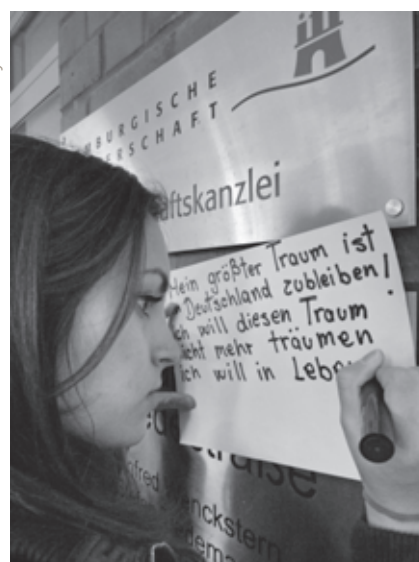 BURGISCHE
ERSCHAFT
aftskanzlei
Mein größter Traum ist
Deutschland zubleiben!
ch will diesen Traum
icht mehr träumen
ich will in Lebe
straße
nfred
enckstern